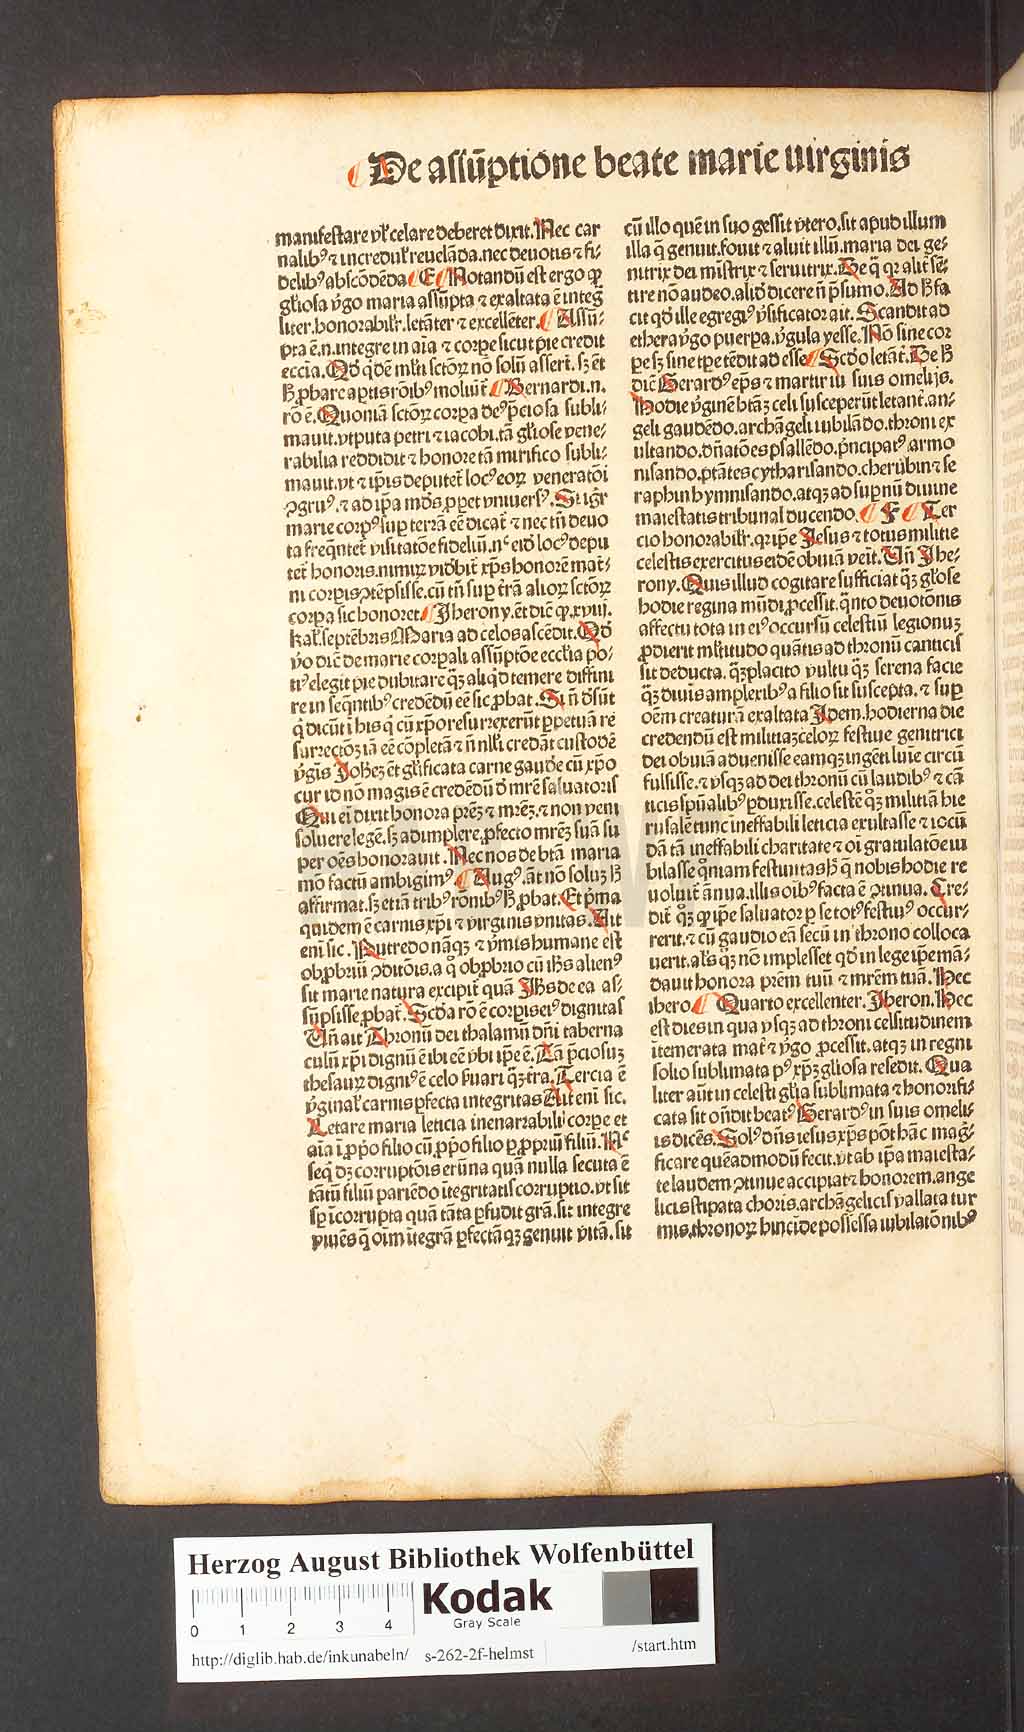 De assūptione beate marie uirginis
manifestare vl' celare deberet dixit. Nec car
nalibꝰ ⁊ incredul' reuelāda. nec deuotis ⁊ fi-
delibꝰ abscōdēda E Notandū est ergo ꝙ
gl'iosa v̄go maria assūpta ⁊ exaltata ē inteḡ
liter. honorabil'r. letāter ⁊ excellēter. Assū-
pta ē. n. integre in aīa ⁊ corpe sicut pie credit
eccīa. Qd̄ qdē ml'ti sctōꝝ nō solū assert. sꝫ ēt
Bernardi. n.
rō ē. Quoniā sctōꝝ corpa deꝰ p̄ciosa subli-
mauit. vtputa petri ⁊ iacobi. tā gl'iose vene-
rabilia reddidit ⁊ honore tā mirifico subli-
mauit. vt ⁊ ip̄is deputet locꝰ eoꝝ veneratōi
ꝯgruꝰ. ⁊ ad ip̄a ꝓpet vniuersꝰ. Si igr̄
marie corpꝰ suꝑ terrā eē dicāt ⁊ nec tn̄ deuo
ta freqn̄tet visitatōe fideliū. n̄c eiꝰ locꝰ depu
tet honoris. nimiꝝ vidēbit xp̄s honorē mat-
ni corpis ꝯtēpsisse. cū tn̄ suꝑ t'rā alioꝝ sctōꝝ
corpa sic honoret Jherony. ēt diē ꝙ. xviij.
kal'. septēbris Maria ad celos ascēdit. Qd̄
v̄o diē de marie corpali assūptōe eccl'ia po-
tiꝰ elegit pie dubitare qꝫ aliqd temere diffini
re in seqn̄tibꝰ credēdū eē sic ꝓbat. Si n̄ dsūt
q̄ dicūt i his q̄ cū xp̄o resurrexerūt ꝑpetuā re
surrectōꝫ iā eē cōpletā ⁊ n̄ nll'i credāt custodē
v̄gīs Johēꝫ ēt gl'ificata carne gaude cū xp̄o
cur id nō magis ē credēdū d̄ mr̄e saluatoris
Qui ei dixit honora prēꝫ ⁊ mr̄eꝫ. ⁊ non veni
soluere legē. sꝫ adimplere. ꝓfecto mrēꝫ suā su
per oēs honorauit. Nec nos de btā maria
mō factū ambigimꝰ Augꝰ. āt nō soluꝫ h̄
affirmat. sꝫ etiā tribꝰ rōnibꝰ h̄ ꝓbat. Et p̄ma
quidem ē carnis xp̄i ⁊ virginis vnitas. Ait
eni sic. Putredo nāqꝫ ⁊ v̄mis humane est
obꝓbriū ꝯditōis. a q̄ obꝓbrio cū ihs alienꝰ
sit marie natura excipit quā Jhs de ea as-
sūpsisse ꝓbat. Scd̄a rō ē corpis eiꝰ dignitas
Un̄ ait Thronū dei thalamū dn̄i taberna
culū xp̄i dignū ē ibi eē vbi ip̄e ē. Tā p̄ciosuꝫ
thesauꝝ digniꝰ ē celo ẜuari qꝫ tra. Tercia ē
v̄ginal' carnis ꝑfecta integritas Ait eni sic.
Letare maria leticia inenarrabili corpe et
aīa i ꝓp̄o filio cū ꝓp̄o filio ꝑ ꝓpriū filiū. Nc̄
seq dꝫ corruptōis erūna quā nulla secuta ē
tātū filiū pariēdo itegritatis corruptio. vt sit
sp̄ icorrupta quā tāta ꝑfudit grā. sit integre
viuēs q̄ oim itegrā ꝑfectāqꝫ genuit vitā. sit
cū illo quē in suo gessit vtero. sit apud illum
illa q̄ genuit. fouit ⁊ aluit illū. maria dei ge-
nitrix dei mistrix ⁊ seruitrix. De q̄ qꝛ alit sē-
tire nō audeo. alid dicere n̄ p̄sumo. Ad h̄ fa
cit qd ille egregiꝰ v̄sificator ait. Scandit ad
ethera v̄go puerpa. v̄gula yesse. Nō sine cor
pe sꝫ sine tpe tēdit ad esse Scdo letāt. De h̄
diē Gerardꝰ ep̄s ⁊ martir iu suis omelijs.
Hodie v̄ginē btāꝫ celi susceperūt letant. an-
geli gaudēdo. archāgeli iubilādo. throni ex
ultando. dn̄atōes psallēdo. p̄ncipatꝰ armo
nisando. ptātes cytharisando. cherubin ⁊ se
raphin hymnisando. atqꝫ ad supnū diuine
maiestatis tribunal ducendo. F Ter
cio honorabil'r. qꝛ ip̄e Jesus ⁊ totus militie
celestis exercitus eidē obuiā veit. Un̄ Jhe-
rony. Quis illud cogitare sufficiat qꝫ gl'iose
hodie regina mūdi ꝓcessit. ⁊ q̄nto deuotōnis
affectu tota in eiꝰ occursū celestiū legionuꝫ
ꝓdierit ml'titudo quātis ad thronū canticis
sit deducta. qꝫ placito vultu qꝫ serena facie
qꝫ diuis amplexibꝰ a filio sit suscepta. ⁊ suꝑ
oēm creaturā exaltata Jdem. hodierna die
credendū est militiaꝫ celoꝝ festiue genitrici
dei obuiā aduenisse eamqꝫ ingēti luie circū
fulsisse. ⁊ vsqꝫ ad dei thronū cū laudibꝰ ⁊ cā
ticis spūalibꝰ ꝑduxisse. celestē qꝫ militiā hie
rusalē tunc ineffabili leticia exultasse ⁊ iocū
dā tā ineffabili charitate ⁊ oi gratulatōe iu
bilasse qm̄iam festiuitas h̄ q̄ nobis hodie re
uoluit ānua. illis oibꝰ facta ē ꝯtinua. Cre-
dit qꝫ ꝙ ip̄e saluator ꝑ se totꝰ festiuꝰ occur-
rerit. ⁊ cū gaudio eā secū in throno colloca
uerit. al's qꝫ nō implesset qd in lege ip̄e mā-
dauit honora prēm tuū ⁊ mrēm tuā. Hec
ihero. Quarto excellenter. Jheron. Hec
est dies in qua vsqꝫ ad throni celsitudinem
itemerata mat' ⁊ v̄go ꝓcessit. atqꝫ in regni
solio sublimata pꝰ xp̄ꝫ gl'iosa resedit. Qua
liter aūt in celesti gl'ia sublimata ⁊ honorifi-
cata sit on̄dit beatꝰ Gerardꝰ in suis omelis
is dicēs. Solꝰ dn̄s iesus xp̄s pōt hāc mag̃-
ficare quēadmodū fecit. vt ab ip̄a maiesta-
te laudem ꝯtinue accipiat ⁊ honorem. ange
licis stipata choris. archāgelicis vallata tur
mis. thronoꝝ hincide possessa iubilatōnibꝰ
Herzog August Bibliothek Wolfenbüttel
Kodak
Gray Scale
0 1 2 3 4
http://diglib.hab.de/inkunabeln/ s-262-2f-helmst /start.htm